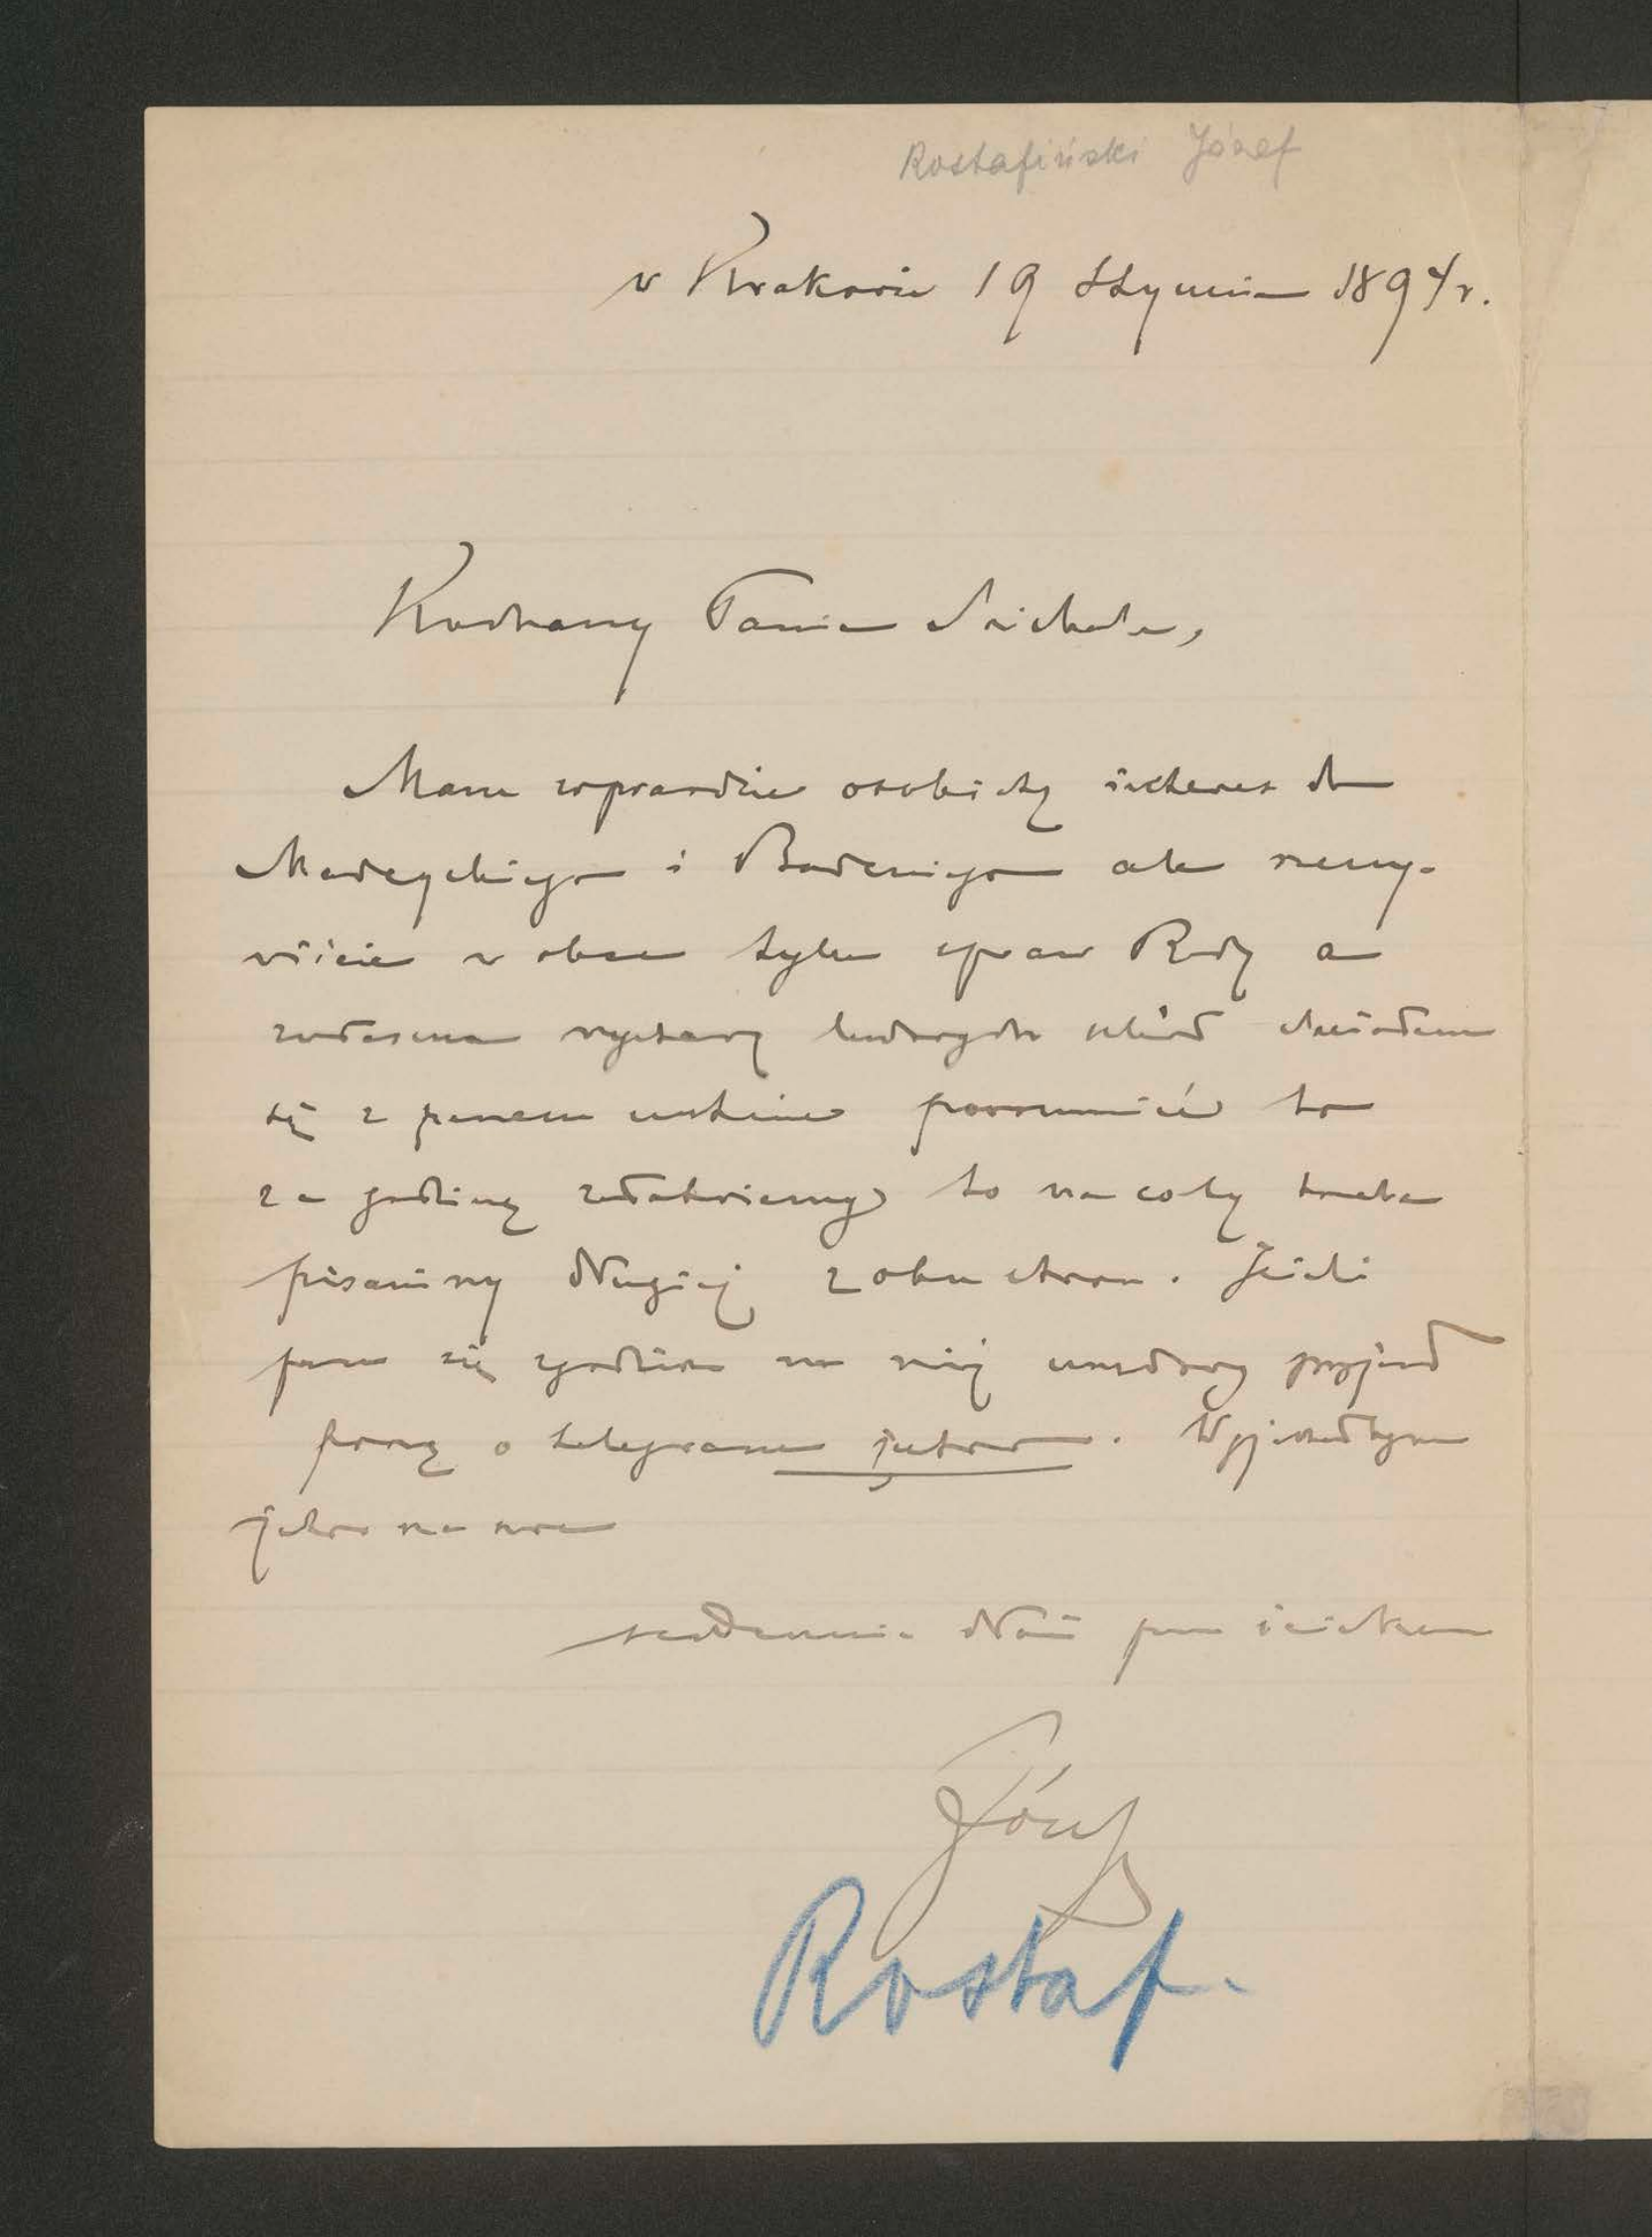 Rostafiński Józef
w Krakowie 19 Stycznia 1894 r.
Kochany Panie Michale,
Mam wprawdzie osobisty interes do
Madeyskiego i Badeniego ale rzeczy-
wiście wobec tylu spraw Rady a
zwłaszcza wystawy chciałbym
się z panem ustnie porozumieć to
za godzinę załatwiemy to na coby trzeba
pisaniny długiej z obu stron. Jeżeli
pan się zgodzi na mój przyjazd
proszę o telegram jutro. Wyjechałbym
jutro na noc
serdecznie dłoń pana ściskam
Józef
Rostaf.